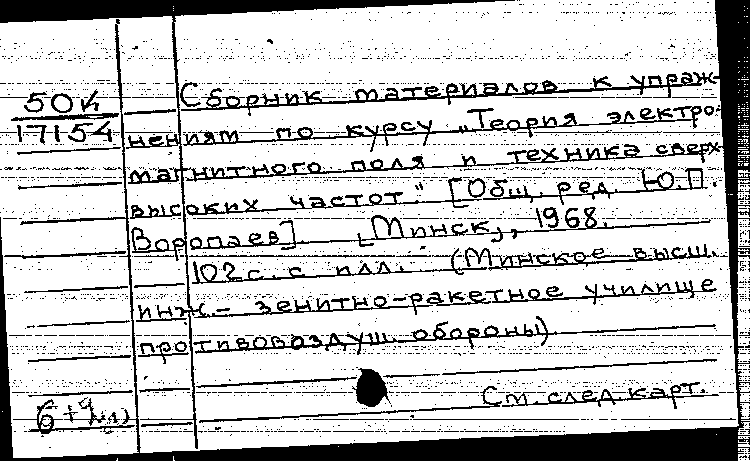 Сборник материалов к упраж-
50й
17154
нениям по курсу „Теория электро-
магнитного поля и техника сверх-
высоких частот." [Общ. ред. Ю.П.
Воропаев]. [Минск], 1968.
102 с. с илл. (Минское высш.
инж.- зенитно-ракетное училище
противовоздуш. обороны)
См. след. карт.